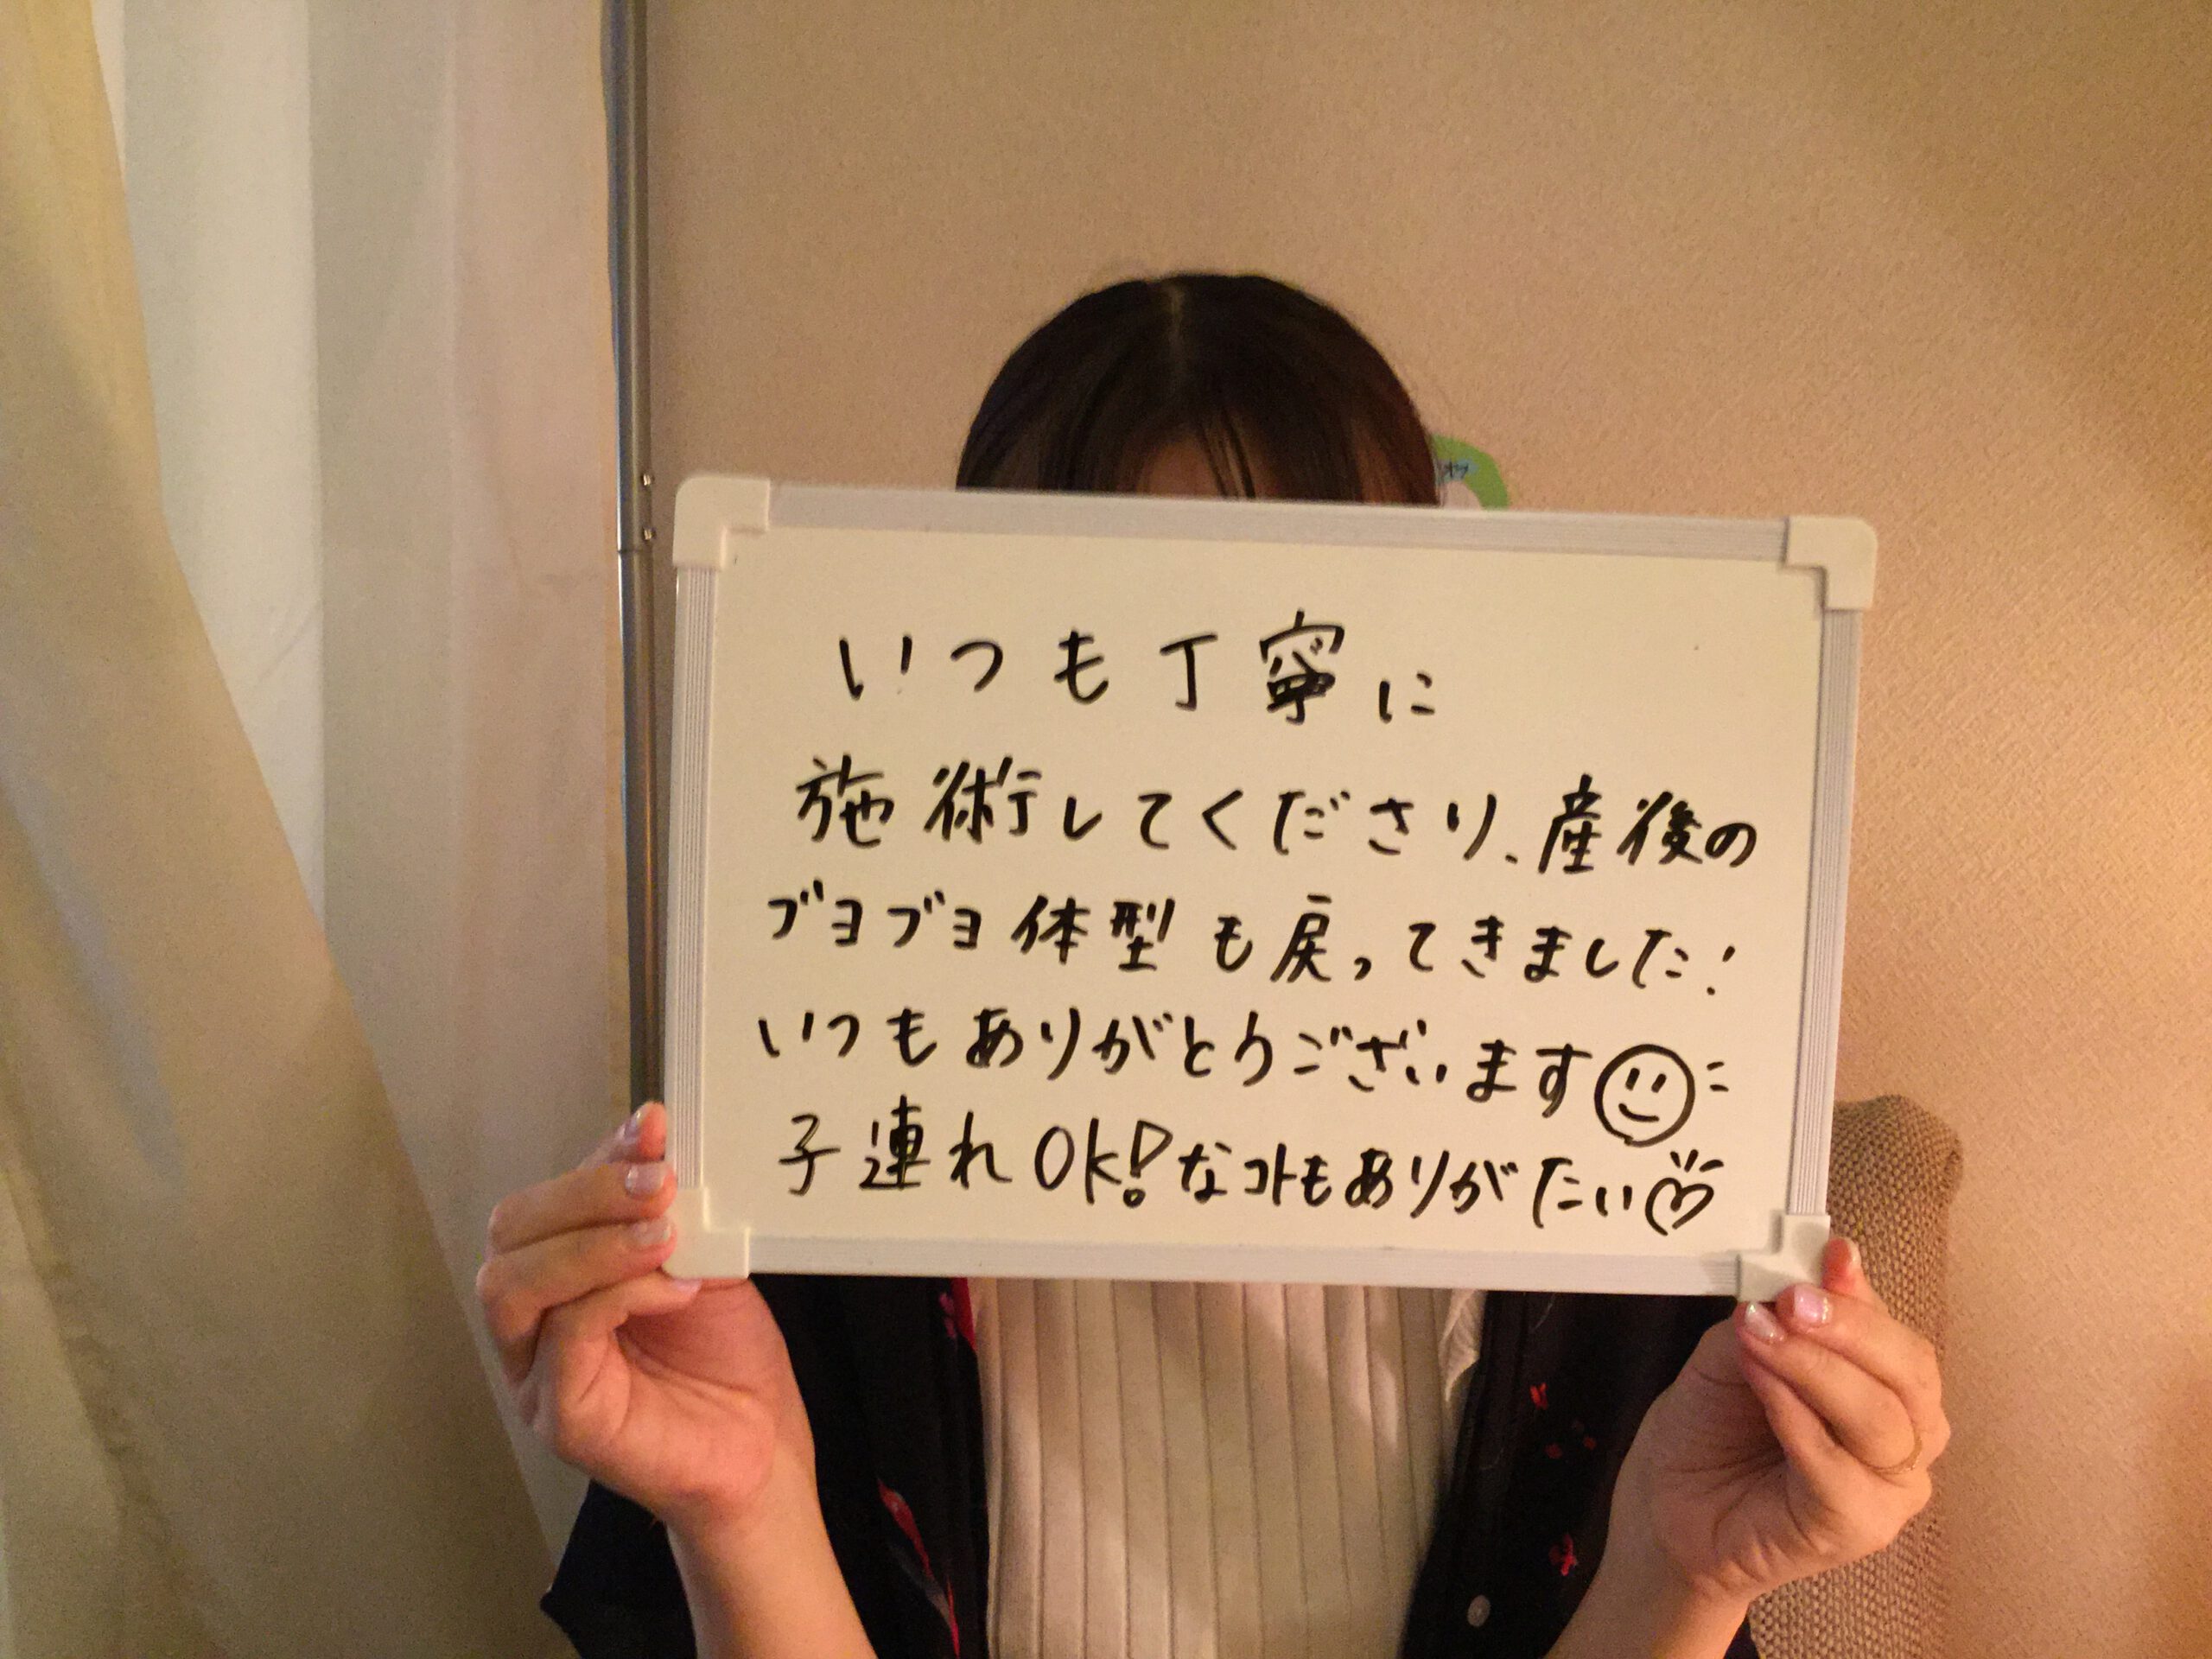 いつも丁寧に
施術してくださり、産後の
ブヨブヨ体型も戻ってきました!
いつもありがとうございます
子連れOK!なコトもありがたい